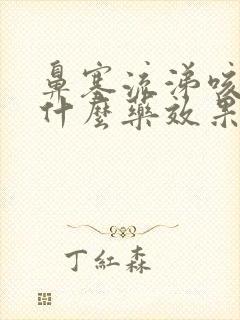 鼻塞流涕咳
什麼藥效果
丁紅森